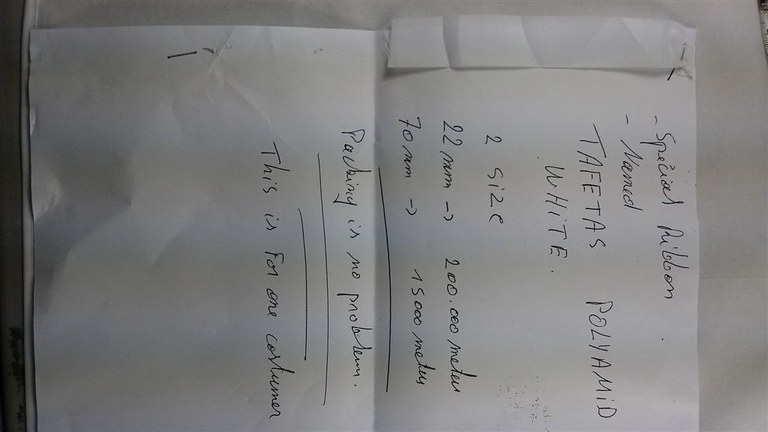 - Special Ribbon
- Named
TAFETAS POLYAMiD
WHiTE.
2 SiZE
22 mm -> 200.000 meter
70 mm -> 15000 meter
Packing is no problem.
This is For one costumer